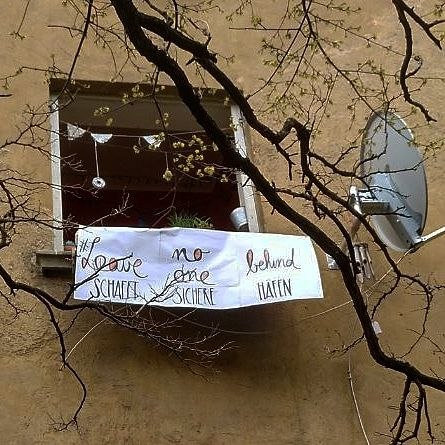 #Leave no one behind
SCHAFFT SICHERE HÄFEN